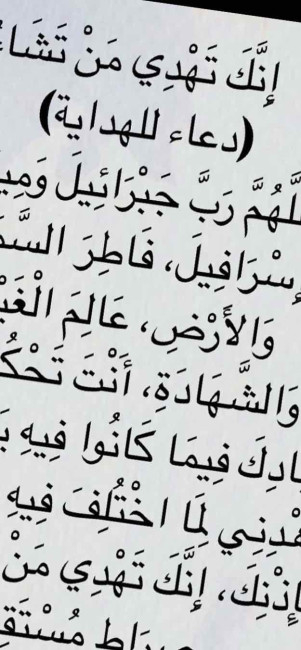 إِنَّكَ تَهْدِي مَنْ تَشَا
(دعاء للهداية)
لَّهُمَّ رَبَّ جَبْرَائِيلَ وَمِي
سْرَافِيلَ، فَاطِرَ السَّمَ
وَالأَرْضِ، عَالِمَ الْغَيْ
وَالشَّهَادَةِ، أَنْتَ تَحْكُ
ادِكَ فِيمَا كَانُوا فِيهِ يَ
هْدِنِي لِمَا اخْتُلِفَ فِيهِ
إِذْنِكَ، إِنَّكَ تَهْدِي مَنْ
صِرَاطٍ مُسْتَقِ